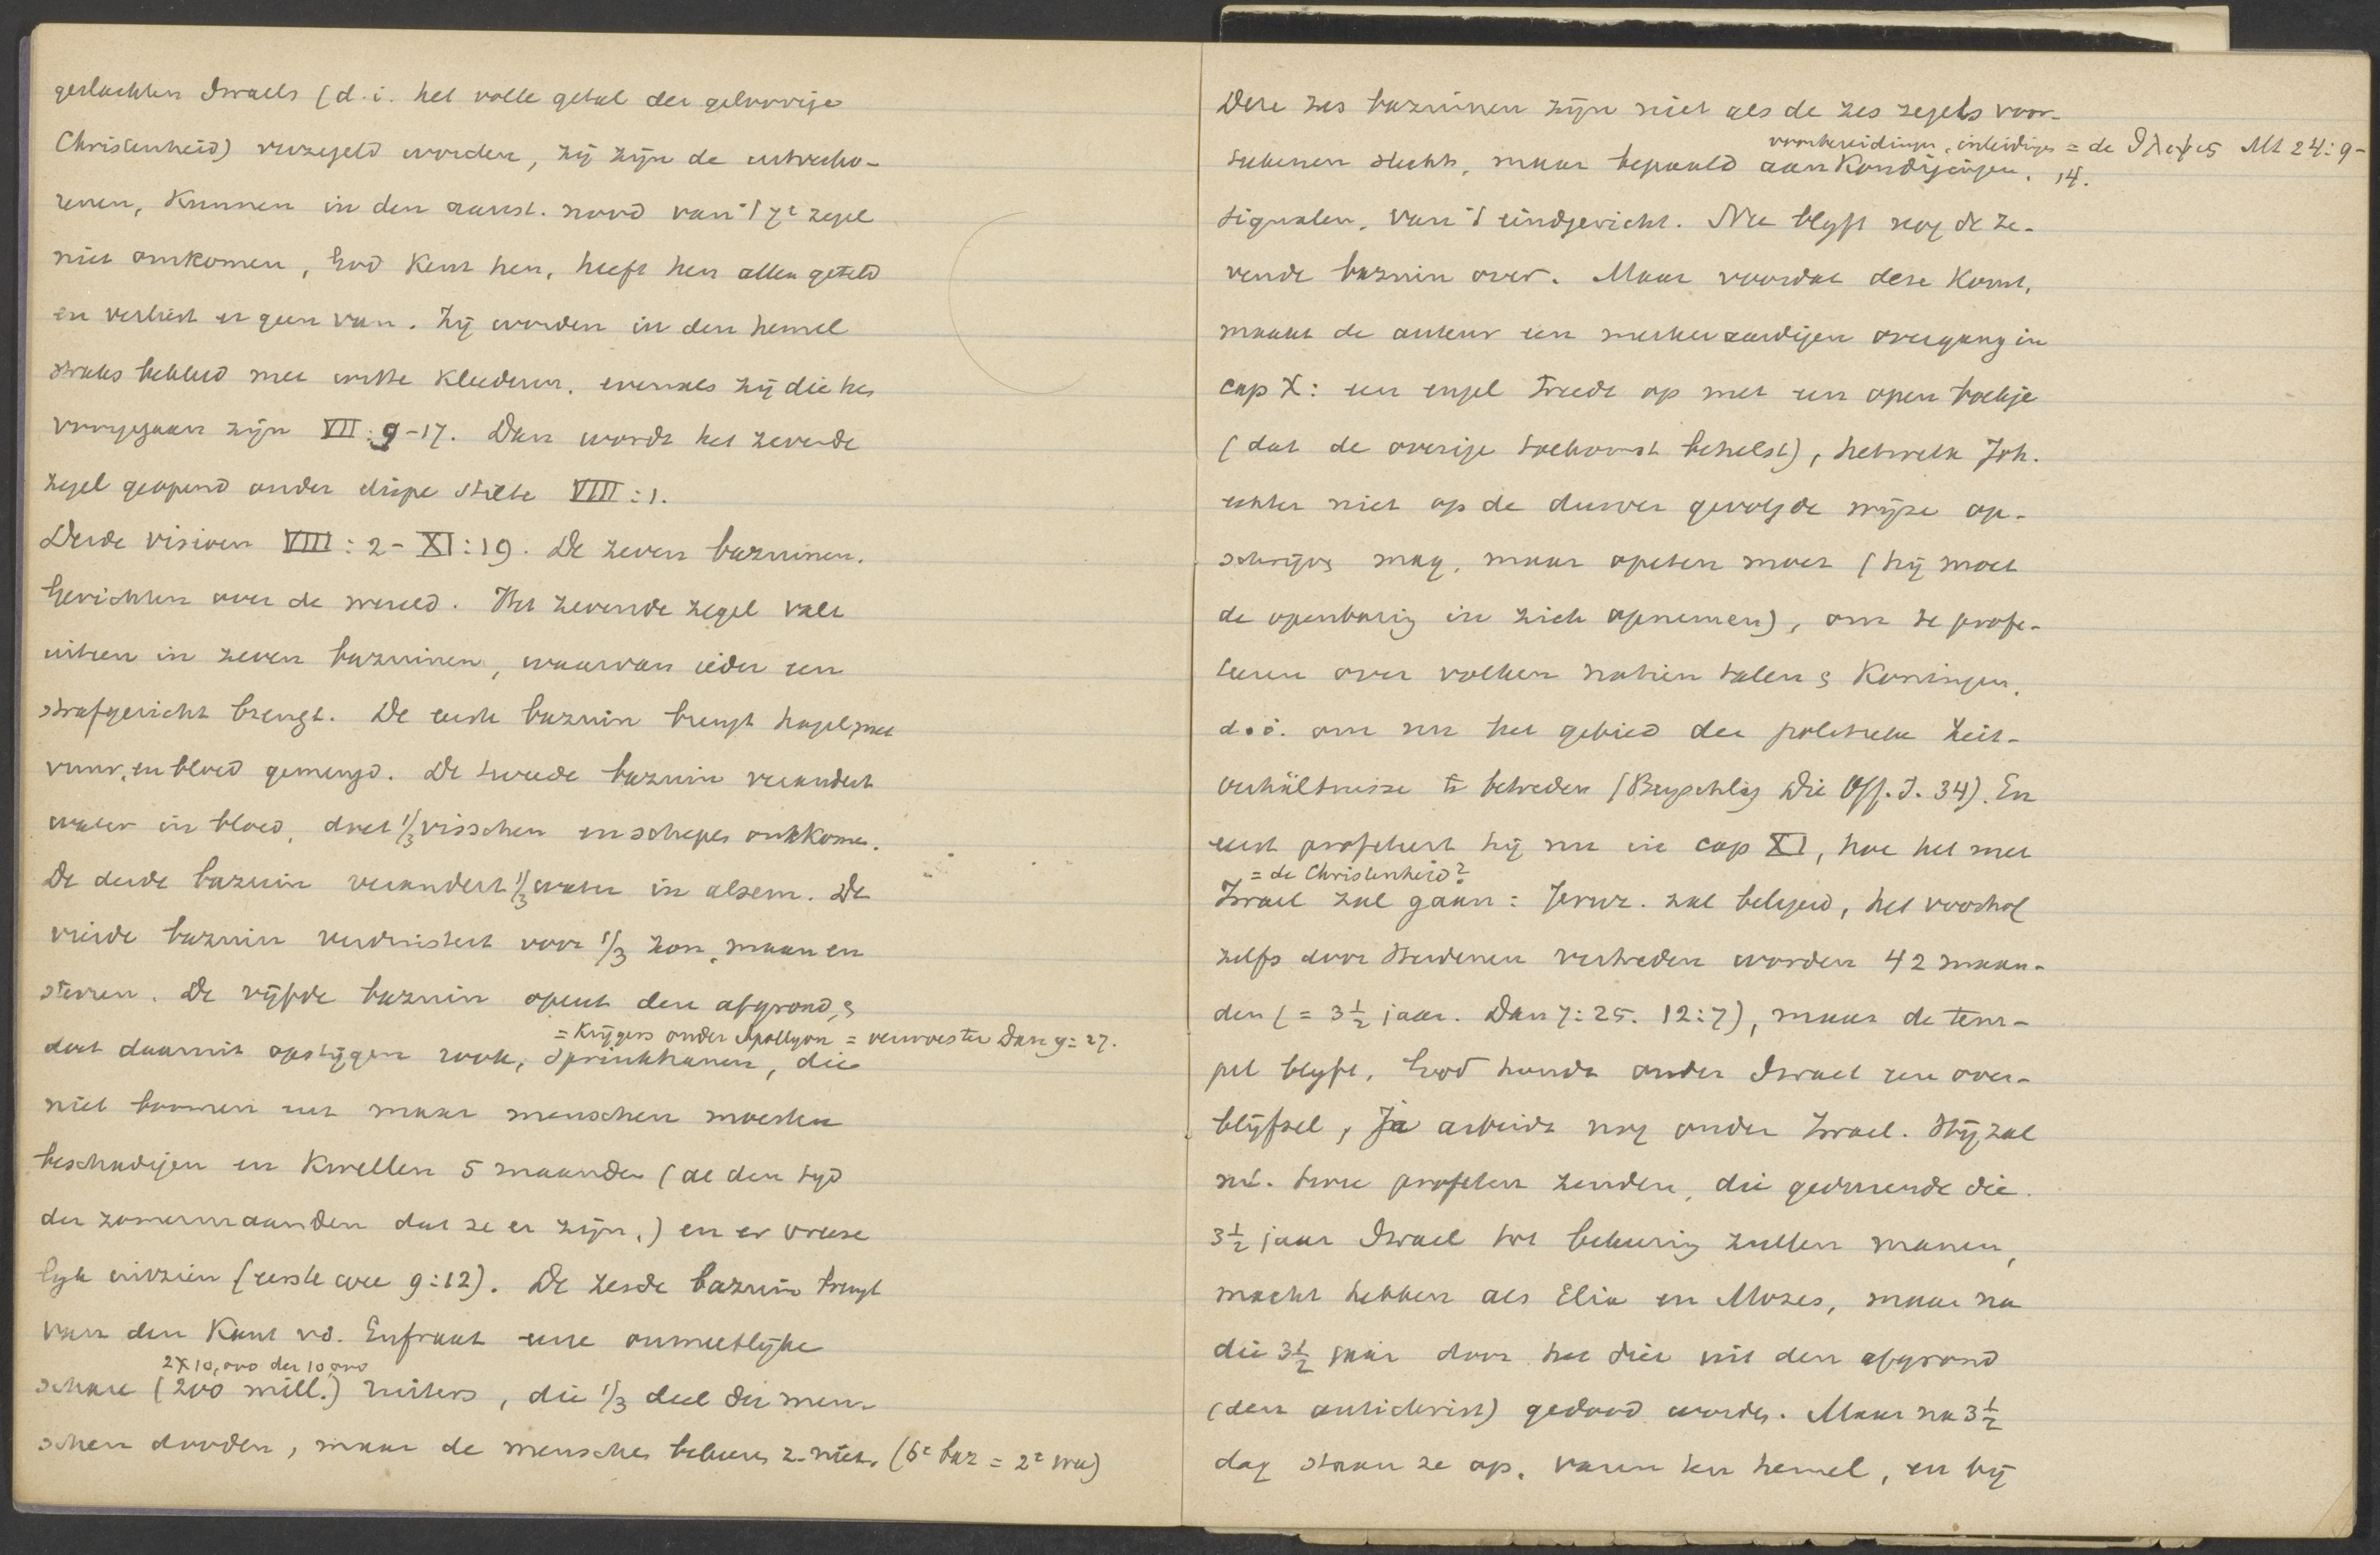 geslachten Israels (d.i. het volle getal der geloovige
Christenheid) verzegeld worden, zij zijn de uitverko-
renen, kunnen in den aanst. nood van 't 7e zegel
niet omkomen, God kent hen, heeft hen allen geteld
en verliest er geen van. Zij worden in den hemel
straks bekleed met witte kleederen, evenals zij die hen
voorgegaan zijn VII:9-17. Dan wordt het zevende
zegel geopend onder diepe stilte VIII:1.
Derde visioen VIII:2-XI:19. De zeven bazuinen.
Gerichten over de wereld. Het zevende zegel valt
uiteen in zeven bazuinen, waarvan ieder een
strafgericht brengt. De eerste bazuin brengt hagel, met
vuur, en bloed gemengd. De tweede bazuin verandert
water in bloed, doet 1/3 visschen en schepen omkomen.
De derde bazuin verandert 1/3 water in alsem. De
vierde bazuin verduistert voor 1/3 zon, maan en
sterren. De vijfde bazuin opent den afgrond, &
= krijgers onder Apollyon = verwoester Dan 9:27.
doet daaruit opstijgen rook, sprinkhanen, die
niet boomen enz maar menschen moesten
beschadigen en kwellen 5 maanden (al den tyd
der zomermaanden dat ze er zijn,) en er vreese
lyk uitzien (eerste wee 9:12). De zesde bazuin brengt
van den kant v.d. Eufraat eene onmeetlijke
2x10,000 der 10,000
schare (200 mill.) ruiters, die 1/3 deel der men-
schen dooden, maar de menschen bekeeren z. niet. (6e baz = 2e wee)
Deze zes bazuinen zijn niet als de zes zegels voor-
voorbereidingen, inleidingen = de θλιψις Mt 24:9-
teekenen slechts, maar bepaald aankondigingen, 14.
signalen, van 't eindgericht. Nu blyft nog de ze-
vende bazuin over. Maar voordat deze komt,
maakt de auteur een merkwaardigen overgang in
cap X: een engel treedt op met een open boekje
(dat de overige toekomst behelst), hetwelk Joh.
echter niet op de dusver gevolgde wijze op-
schrijven mag, maar opeten moet (hij moet
de openbaring in zich opnemen), om te profe-
teeren over volken natien talen & koningen,
d.i. om nu het gebied der politieke Zeit-
verhältnisse te betreden (Beyschlag Die Off. J. 34). En
eerst profeteert hij nu in cap XI, hoe het met
= de Christenheid?
Israel zal gaan: Jeruz. zal belegerd, het voorhof
zelfs door Heidenen vertreden worden 42 maan-
den (= 3 1/2 jaar. Dan 7:25. 12:7), maar de tem-
pel blyft, God houdt onder Israel een over-
blijfsel, Ja arbeidt nog onder Israel. Hij zal
nl. twee profeten zenden, die gedurende die
3 1/2 jaar Israel tot bekeering zullen manen,
macht hebben als Elia en Mozes, maar na
die 3 1/2 jaar door het dier uit den afgrond
(den antichrist) gedood worden. Maar na 3 1/2
dag staan ze op, varen ten hemel, en bij